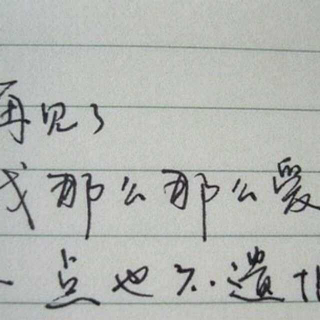 再见了
我那么那么爱
一点也不遗